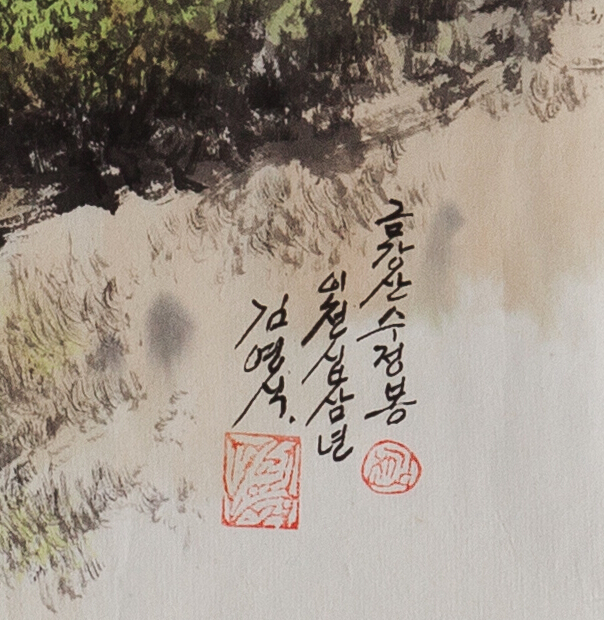 금강산 수정봉
이천십삼년
김영식.